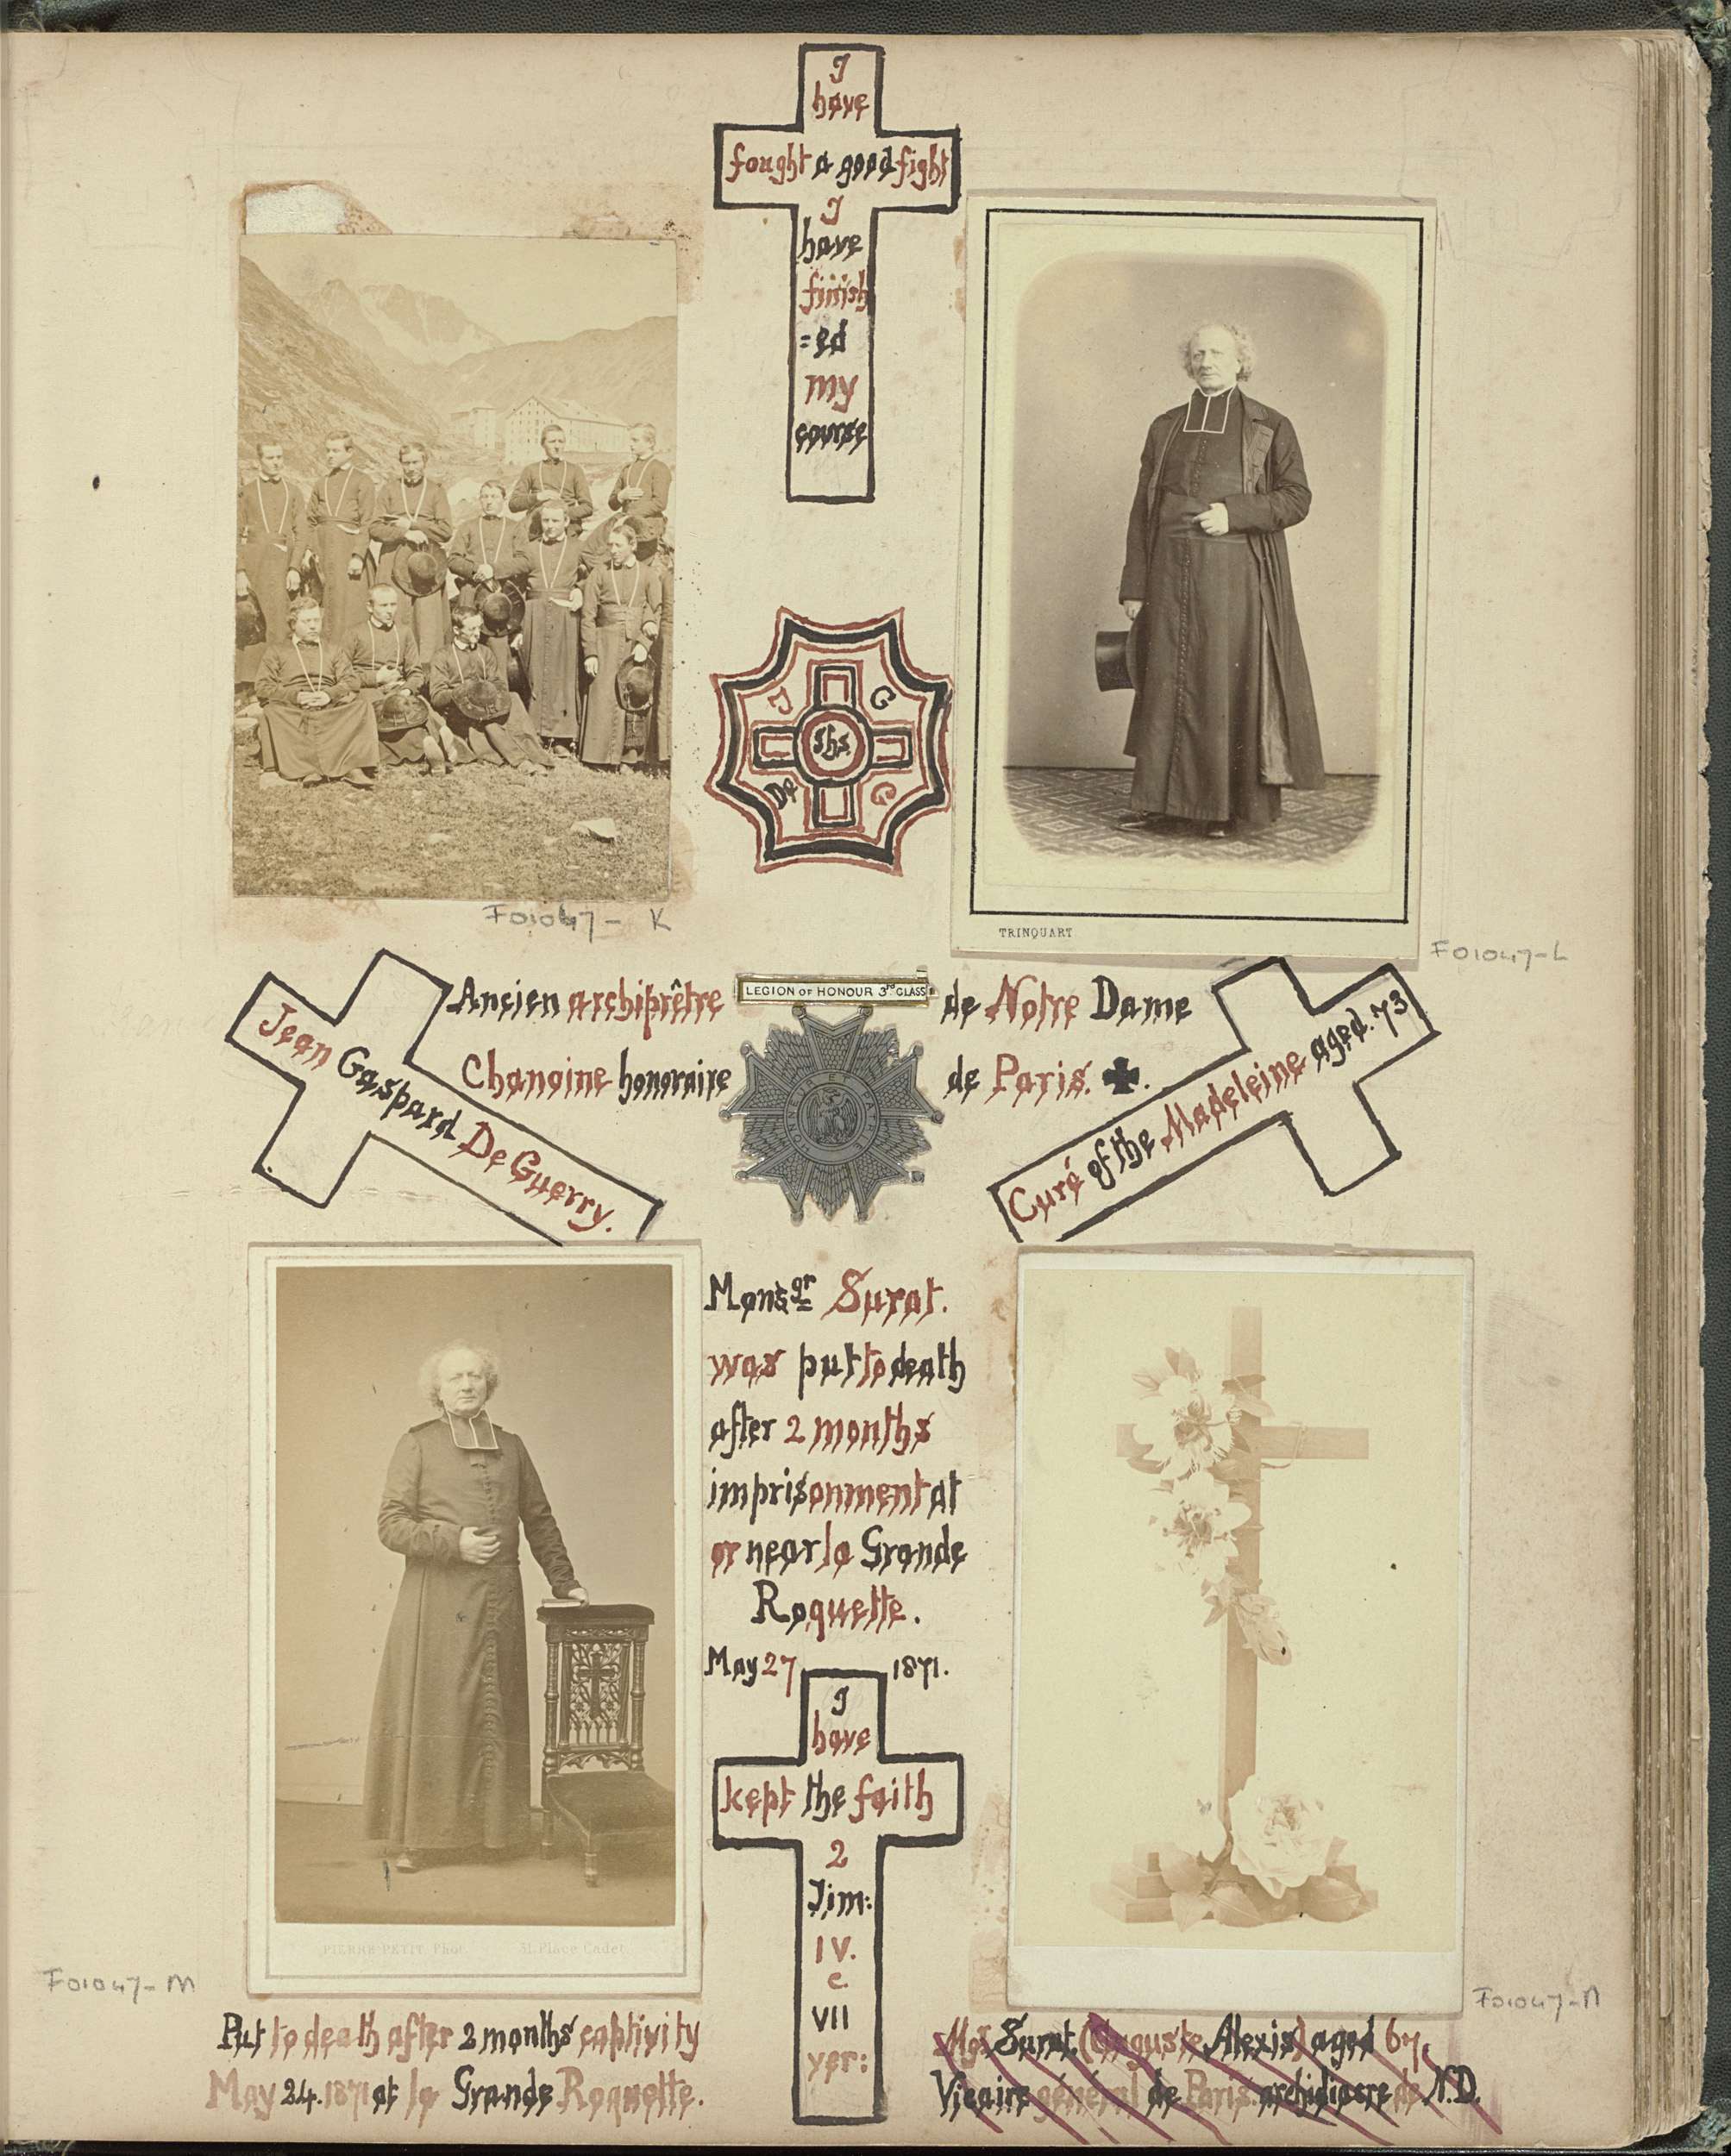 I
have
fought a good fight
I
have
finish
=ed
my
course
J G
Ihs
De G
F01047-K
TRINQUART
F01047-L
Ancien archiprêtre
LEGION OF HONOUR 3RD CLASS
de Notre Dame
Chanoine honoraire
de Paris.
Jean Gaspard De Guerry.
Curé of the Madeleine aged. 73
Monsgr Surat.
was put to death
after 2 months
imprisonment at
or near la Grande
Roquette.
May 27 1871.
I
have
kept the faith
2
Tim:
IV.
c.
VII
yer:
PIERRE PETIT Phot. 31, Place Cadet
F01047-M
F01047-N
Put to death after 2 months' captivity
May 24. 1871 at la Grande Roquette.
Mgr Surat. (Auguste Alexis) aged 67.
Vicaire général de Paris. archidiacre de N.D.